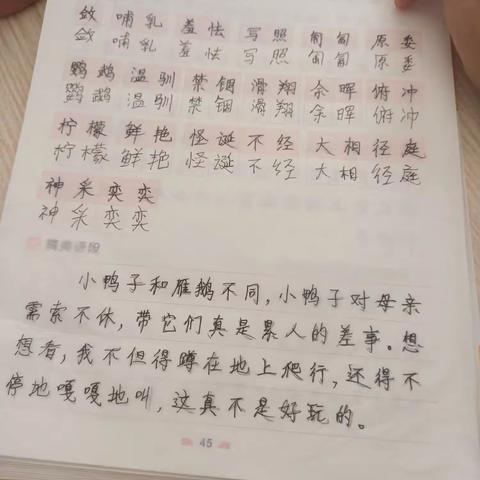 敛 哺乳 羞怯 写照 匍匐 原委
敛 哺乳 羞怯 写照 匍匐 原委
鹦鹉 温驯 禁锢 滑翔 余晖 俯冲
鹦鹉 温驯 禁锢 滑翔 余晖 俯冲
柠檬 鲜艳 怪诞不经 大相径庭
柠檬 鲜艳 怪诞不经 大相径庭
神采奕奕
神采奕奕
美语段
小鸭子和雁鹅不同，小鸭子对母亲
需索不休，带它们真是累人的差事。想
想看，我不但得蹲在地上爬行，还得不
停地嘎嘎地叫，这真不是好玩的。
45